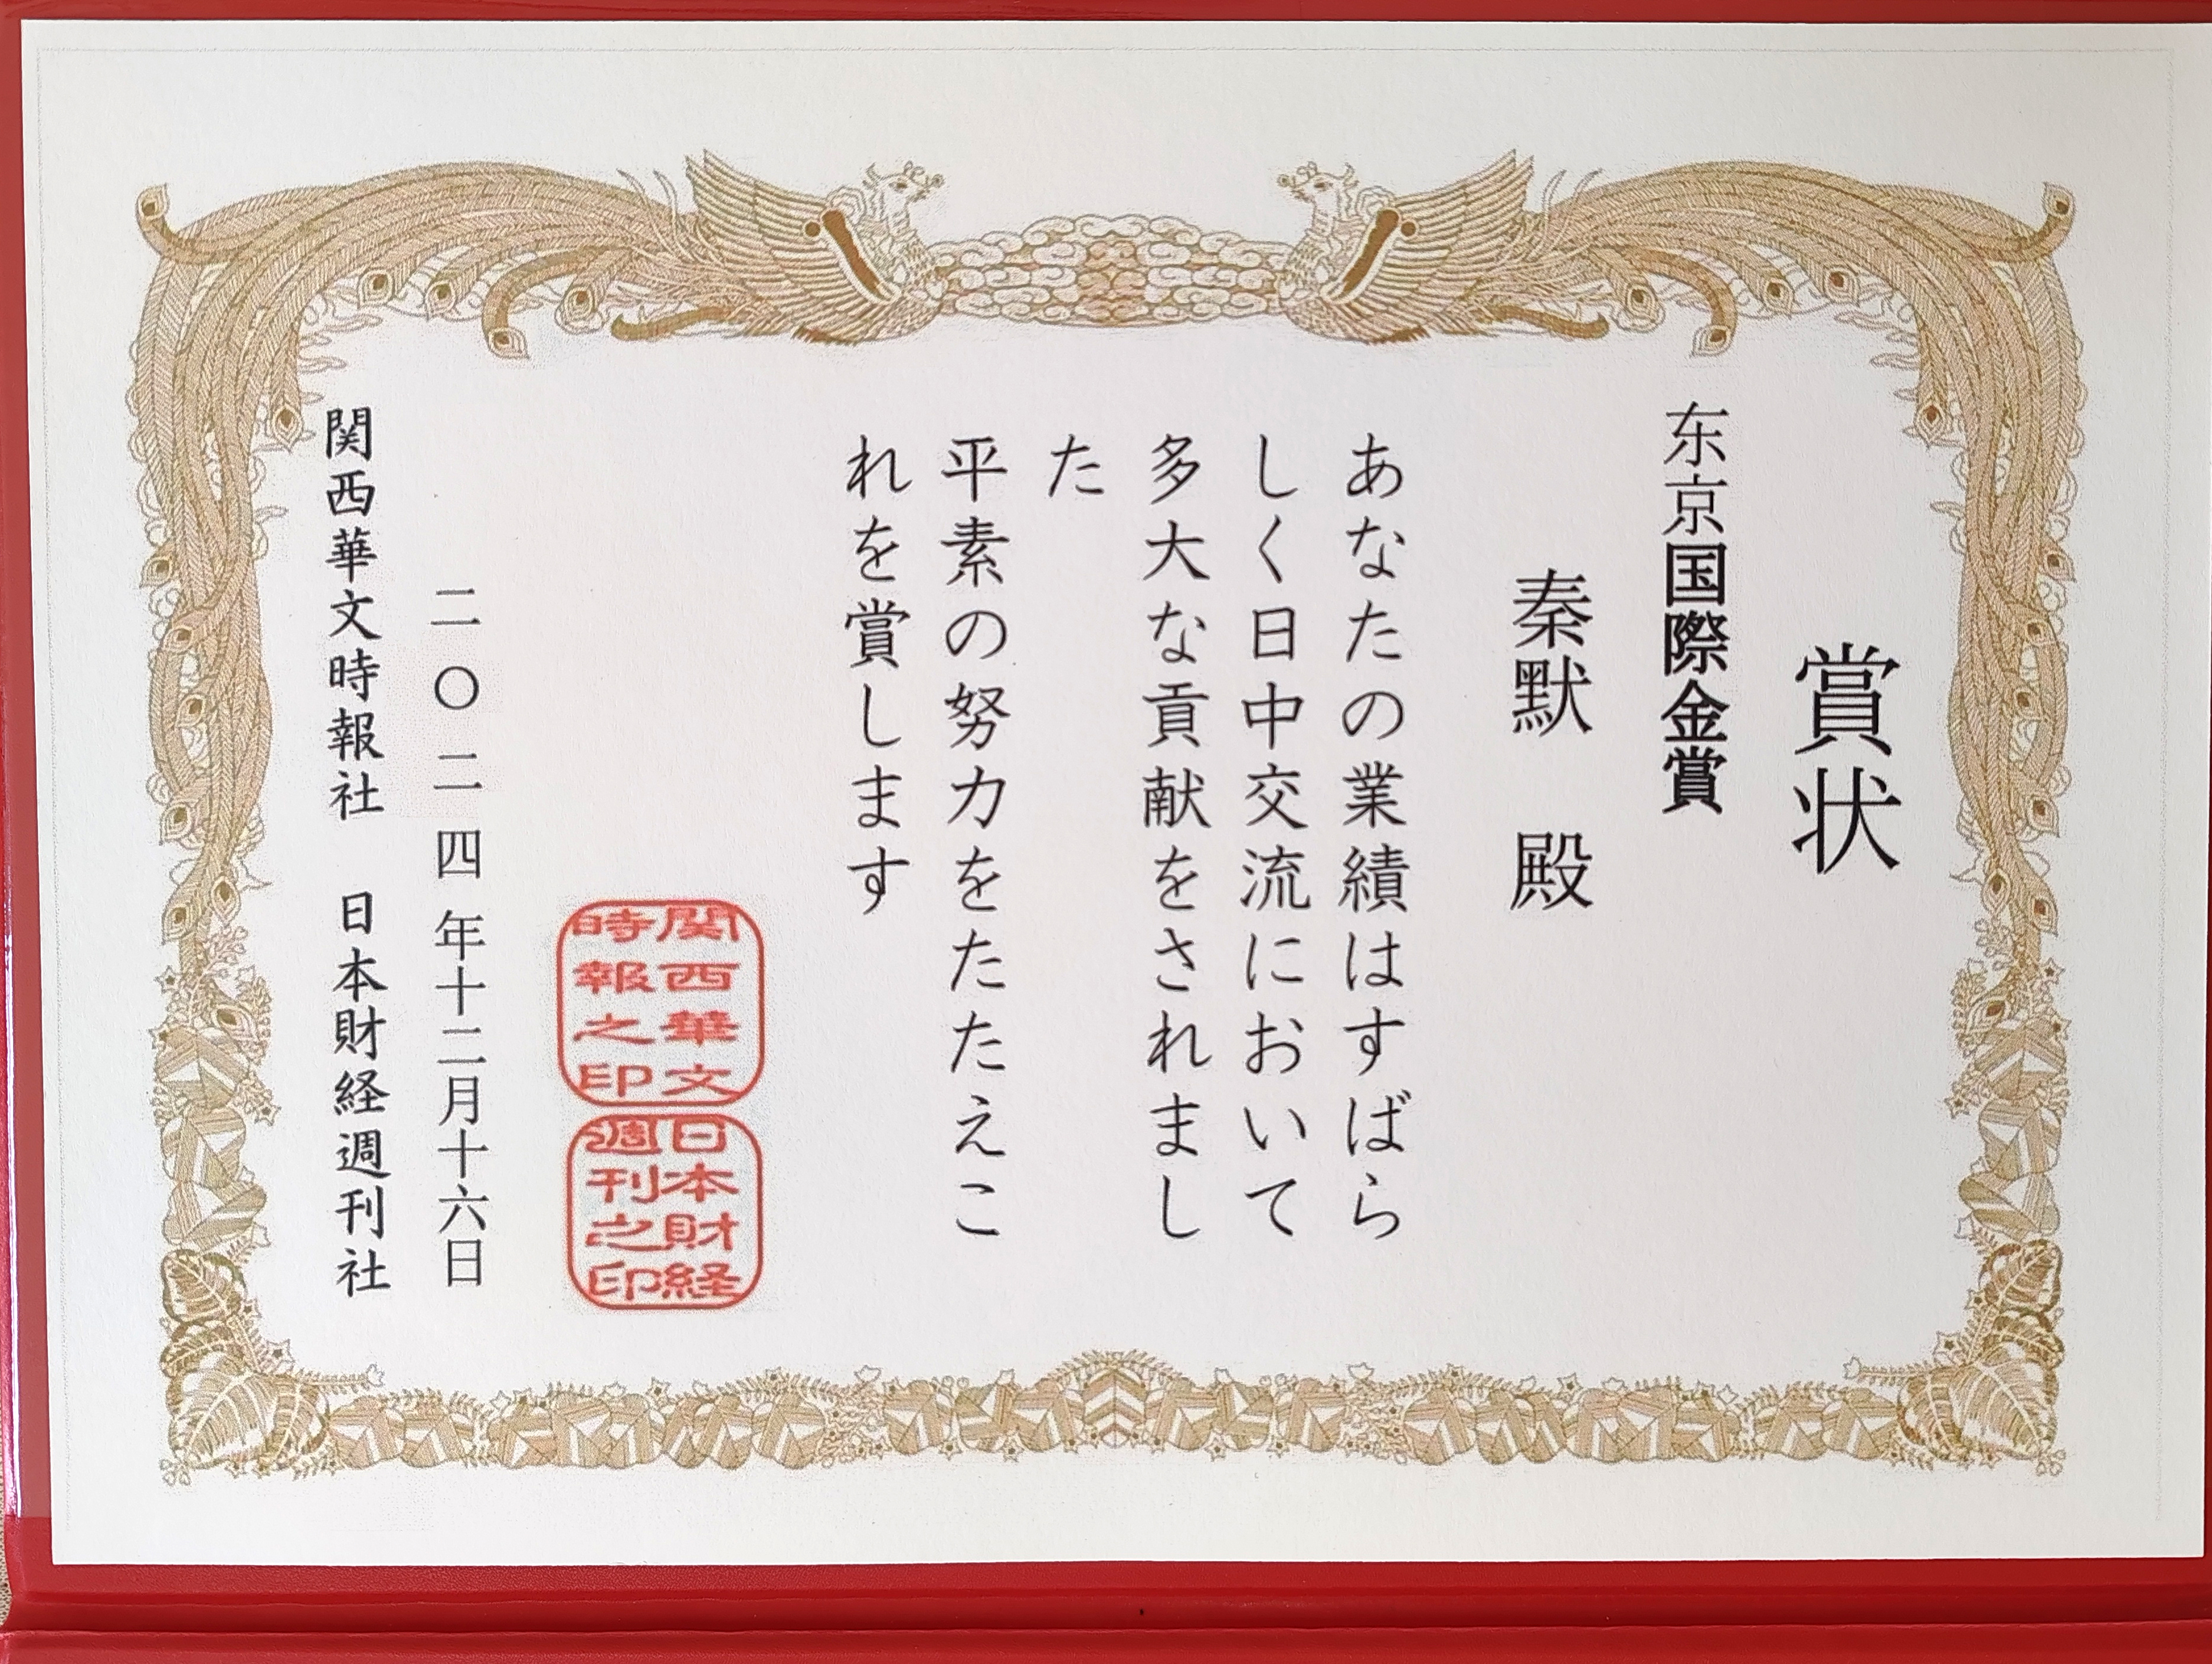 賞状
东京国際金賞
秦默　殿
あなたの業績はすばら
しく日中交流において
多大な貢献をされまし
た
平素の努力をたたえこ
れを賞します
関西華文
時報之印
日本財経
週刊之印
二〇二四年十二月十六日
関西華文時報社　日本財経週刊社